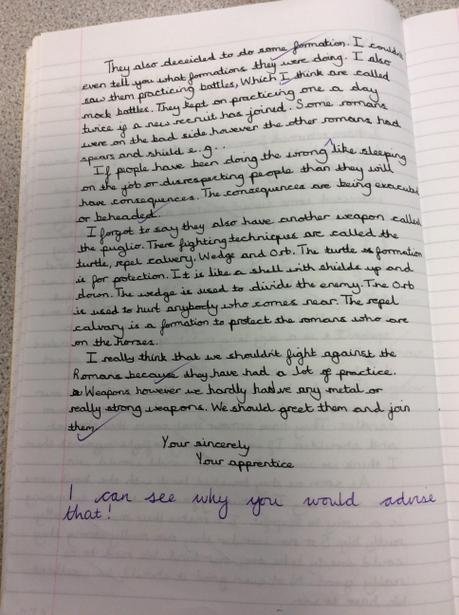 They also deceided to do some formation. I couldn't
even tell you what formations they were doing. I also
saw them practicing battles, Which I think are called
mock battles. They kept on practicing one a day
twice if a new recruit has joined. Some romans
were on the bad side however the other romans had
spears and shield e.g..
If people have been doing the wrong ^ like sleeping
on the job or disrespecting people than they will
have consequences. The consequences are being executed
or beheaded.
I forgot to say they also have another weapon called
the puglio. There fighting techniques are called the
turtle, repel calvery. Wedge and Orb. The turtle formation
is for protection. It is like a shell with shields up and
down. The wedge is used to divide the enemy. The Orb
is used to hurt anybody who comes near. The repel
calvary is a formation to protect the romans who are
on the horses.
I really think that we shouldn't fight against the
Romans because they have had a lot of practice.
Weapons however we hardly have any metal or
really strong weapons. We should greet them and join
them.
Your sincerely
Your apprentice
I can see why you would advise
that!